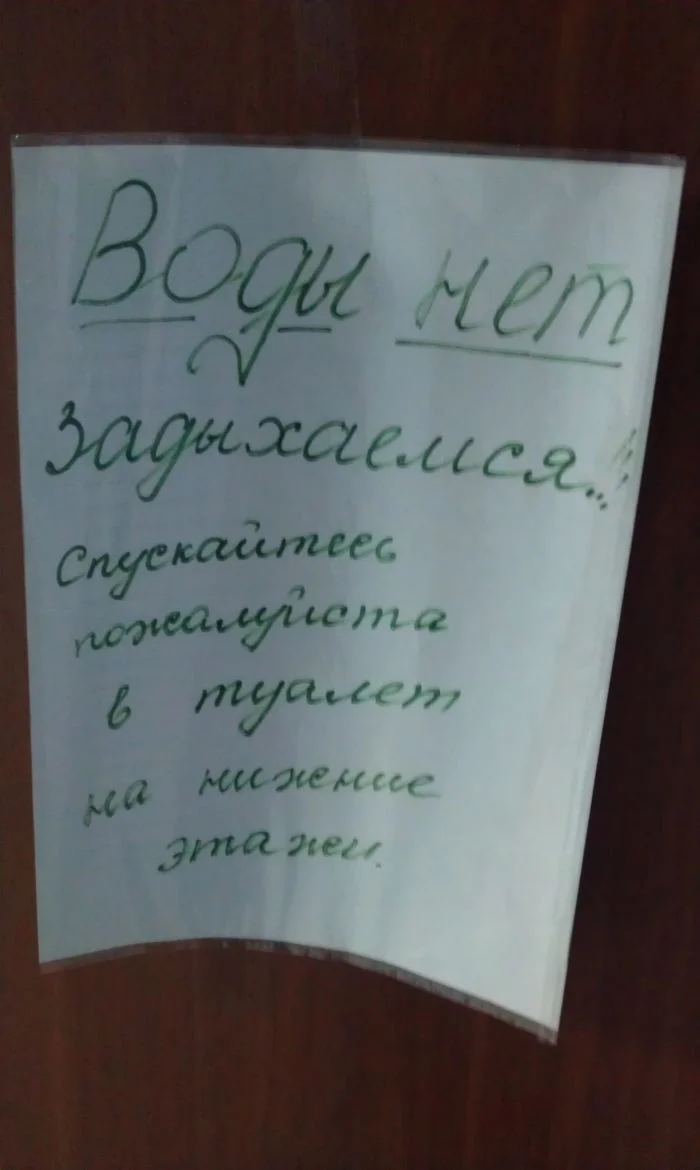 Воды нет
Задыхаемся...!!!
Спускайтесь
пожалуйста
в туалет
на нижние
этажи.